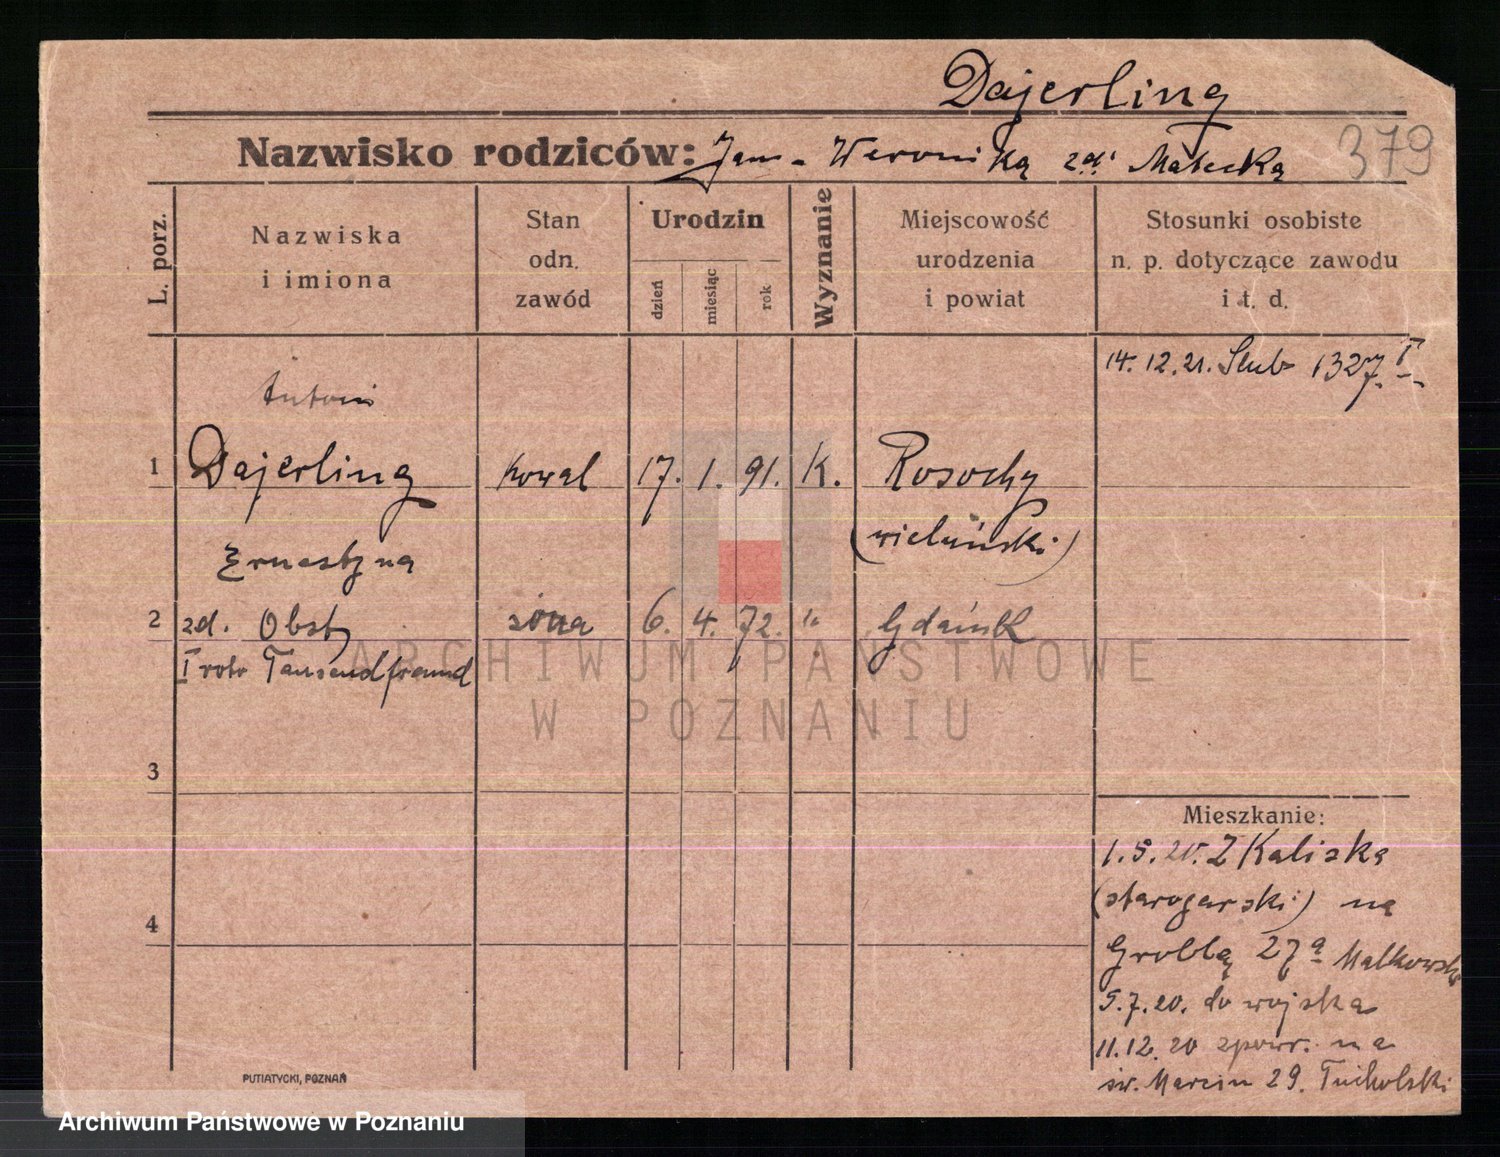 Dajerling
379
Nazwisko rodziców: Jan - Weronika zd. Małecka
L. porz.
Nazwiska
i imiona
Stan
odn.
zawód
Urodzin
dzień
miesiąc
rok
Wyznanie
Miejscowość
urodzenia
i powiat
Stosunki osobiste
n. p. dotyczące zawodu
i t. d.
14. 12. 21. Ślub 1327. I
Antoni
1 Dajerling kowal 17. 1. 91. K. Rosochy
(wieluński)
Ernestyna
2 zd. Obst żona 6. 4. 72. " Gdańsk
I voto Tausendfreund
3
4
Mieszkanie:
1. 5. 20. Z Kaliska
(starogarski) na
Groblą 27a Malkowski
5. 7. 20. do wojska
11. 12. 20 zpowr. na
św. Marcin 29. Tucholski
PUTIATYCKI, POZNAŃ
ARCHIWUM PAŃSTWOWE
W POZNANIU
Archiwum Państwowe w Poznaniu